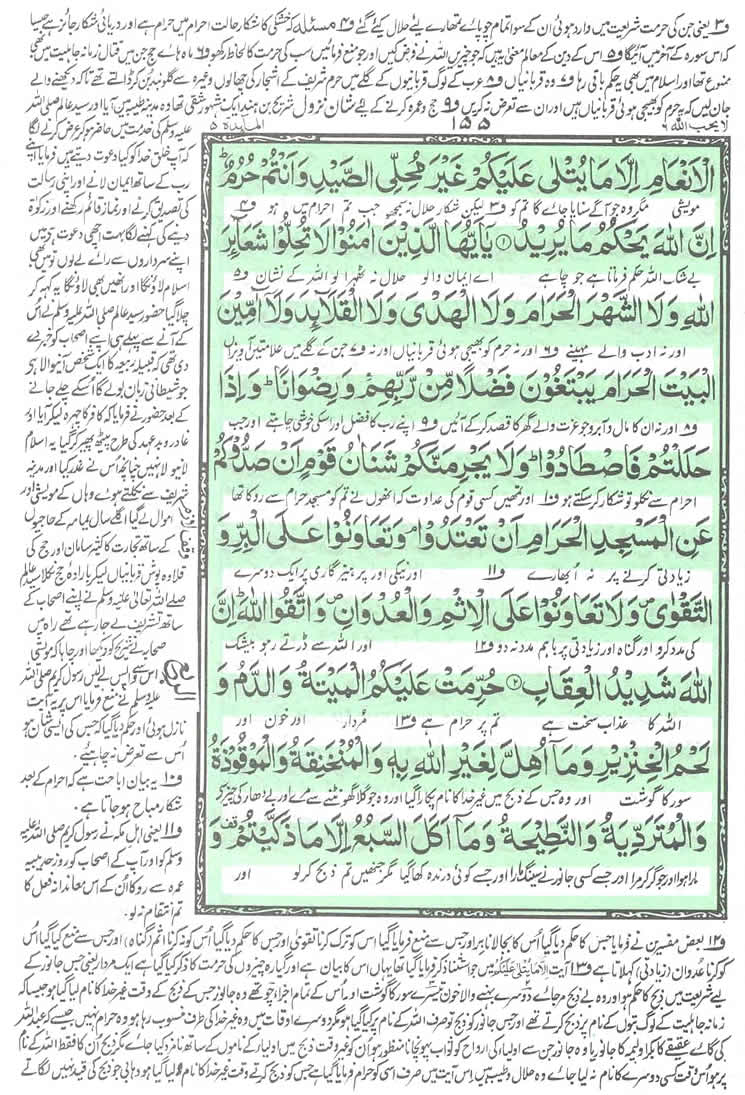 و۳ یعنی جن کی حرمت شریعت میں وارد ہوئی ان کے سوا تمام چوپائے تمہارے لیے حلال کیے گئے و۴ مسئلہ کہ خشکی کا شکار حالت احرام میں حرام ہے اور دریائی شکار جائز ہے جیسا
کہ اس سورہ کے آخر میں آئیگا و۵ اس کے دین کے معالم معنی یہ ہیں کہ جو چیزیں اللہ نے فرض کیں اور جو منع فرمائیں سب کی حرمت کا لحاظ رکھو و۶ ماہ ہائے حج جن میں قتال زمانہ جاہلیت میں بھی
ممنوع تھا اور اسلام میں بھی یہ حکم باقی رہا و۷ وہ قربانیاں و۸ عرب کے لوگ قربانیوں کے گلے میں حرم شریف کے اشجار کی چھالوں وغیرہ سے گلوبند بُن کر ڈالتے تھے تاکہ دیکھنے والے
جان لیں کہ یہ حرم کو بھیجی ہوئی قربانیاں ہیں اور ان سے تعرض نہ کریں و۹ حج و عمرہ کرنے کے لئے شان نزول شریح بن ہند ایک مشہور شقی تھا وہ مدینہ طیبہ میں آیا اور سید عالم صلی اللہ
لا یحب اللہ ۶
۱۵۵
المائدۃ ۵
الْاَنْعَامِ اِلَّا مَا یُتْلٰى عَلَیْكُمْ غَیْرَ مُحِلِّی الصَّیْدِ وَ اَنْتُمْ حُرُمٌؕ
مویشی مگر وہ جو آگے سنایا جائے گا تم کو و۳ لیکن شکار حلال نہ سمجھو جب تم احرام میں ہو و۴
اِنَّ اللّٰهَ یَحْكُمُ مَا یُرِیْدُ ① یٰۤاَیُّهَا الَّذِیْنَ اٰمَنُوْا لَا تُحِلُّوْا شَعَآىٕرَ
بے شک اللہ حکم فرماتا ہے جو چاہے اے ایمان والو حلال نہ ٹھہرا لو اللہ کے نشان و۵
اللّٰهِ وَ لَا الشَّهْرَ الْحَرَامَ وَ لَا الْهَدْیَ وَ لَا الْقَلَآىٕدَ وَ لَاۤ آٰمِّیْنَ
اور نہ ادب والے مہینے و۶ اور نہ حرم کو بھیجی ہوئی قربانیاں اور نہ و۷ جن کے گلے میں علامتیں آویزاں
الْبَیْتَ الْحَرَامَ یَبْتَغُوْنَ فَضْلًا مِّنْ رَّبِّهِمْ وَ رِضْوَانًاؕ وَ اِذَا
و۸ اور نہ ان کا مال و آبرو جو عزت والے گھر کا قصد کرکے آئیں و۹ اپنے رب کا فضل اور اسکی خوشی چاہتے اور جب
حَلَلْتُمْ فَاصْطَادُوْاؕ وَ لَا یَجْرِمَنَّكُمْ شَنَاٰنُ قَوْمٍ اَنْ صَدُّوْكُمْ
احرام سے نکلو تو شکار کر سکتے ہو و۱۰ اور تمہیں کسی قوم کی عداوت کہ انھوں نے تم کو مسجد حرام سے روکا تھا
عَنِ الْمَسْجِدِ الْحَرَامِ اَنْ تَعْتَدُوْاۘ وَ تَعَاوَنُوْا عَلَى الْبِرِّ وَ
زیادتی کرنے پر نہ اُبھارے و۱۱ اور نیکی اور پرہیزگاری پر ایک دوسرے
التَّقْوٰى۪ وَ لَا تَعَاوَنُوْا عَلَى الْاِثْمِ وَ الْعُدْوَانِ۪ وَ اتَّقُوا اللّٰهَؕ اِنَّ
کی مدد کرو اور گناہ اور زیادتی پر باہم مدد نہ دو و۱۲ اور اللہ سے ڈرتے رہو بیشک
اللّٰهَ شَدِیْدُ الْعِقَابِ ② حُرِّمَتْ عَلَیْكُمُ الْمَیْتَةُ وَ الدَّمُ وَ
اللہ کا عذاب سخت ہے تم پر حرام ہے و۱۳ مُردار اور خون اور
لَحْمُ الْخِنْزِیْرِ وَ مَاۤ اُهِلَّ لِغَیْرِ اللّٰهِ بِهٖ وَ الْمُنْخَنِقَةُ وَ الْمَوْقُوْذَةُ
سور کا گوشت اور وہ جس کے ذبح میں غیر خدا کا نام پکارا گیا اور وہ جو گلا گھونٹنے سے مرے اور بے دھار کی چیز سے
وَ الْمُتَرَدِّیَةُ وَ النَّطِیْحَةُ وَ مَاۤ اَكَلَ السَّبُعُ اِلَّا مَا ذَكَّیْتُمْ۫ وَ
مارا ہوا اور جو گر کر مرا اور جسے کسی جانور نے سینگ مارا اور جسے کوئی درندہ کھا گیا مگر جنھیں تم ذبح کر لو اور
علیہ وسلم کی خدمت میں حاضر ہو کر عرض کرنے لگا
کہ آپ خلق خدا کو کیا دعوت دیتے ہیں فرمایا اپنے
رب کے ساتھ ایمان لانے اور اپنی رسالت
کی تصدیق کرنے اور نماز قائم رکھنے اور زکوٰۃ
دینے کی کہنے لگا بہت اچھی دعوت ہے میں
اپنے سرداروں سے رائے لے لوں تو میں بھی
اسلام لاؤنگا اور انھیں بھی لاؤنگا یہ کہہ کر
چلا گیا حضور سید عالم صلی اللہ علیہ وسلم نے اُس
کے آنے سے پہلے ہی اپنے اصحاب کو خبر دے
دی تھی کہ قبیلہ ربیعہ کا ایک شخص آنیوالا ہے
جو شیطانی زبان بولے گا اُسکے چلے جانے
کے بعد حضور نے فرمایا کہ کافر کا چہرہ لیکر آیا اور
غادر و بدعہد کی طرح پیٹھ پھیر کر گیا یہ اسلام
لانیوالا نہیں چنانچہ اس نے غدر کیا اور مدینہ
شریف سے نکلتے ہوئے وہاں کے مویشی اور
اموال لے گیا اگلے سال یمامہ کے حاجیوں
کے ساتھ تجارت کا کثیر سامان اور حج کی
قلادہ پوش قربانیاں لیکر بارادہ حج نکلا سید عالم
صلے اللہ تعالیٰ علیہ وسلم اپنے اصحاب کے
ساتھ تشریف لے جا رہے تھے راہ میں
صحابہ نے شریح کو دیکھا اور چاہا کہ مویشی
اس سے واپس لے لیں رسول کریم صلی اللہ
علیہ وسلم نے منع فرمایا اس پر یہ آیت
نازل ہوئی اور حکم دیا گیا کہ جس کی ایسی شان ہو
اُس سے تعرض نہ چاہئے۔
و۱۰ یہ بیان اباحت ہے کہ احرام کے بعد
شکار مباح ہو جاتا ہے۔
و۱۱ یعنی اہل مکہ نے رسول کریم صلی اللہ علیہ
وسلم کو اور آپ کے اصحاب کو روز حدیبیہ
عمرہ سے روکا اُن کے اس معاندانہ فعل کا
تم انتقام نہ لو۔
و۱۲ بعض مفسرین نے فرمایا جس کا حکم دیا گیا اُس کا بجا لانا بِر اور جس سے منع فرمایا گیا اس کو ترک کرنا تقویٰ اور جس کا حکم دیا گیا اُس کو نہ کرنا اثم (گناہ) اور جس سے منع کیا گیا اُس
کو کرنا عدوان (زیادتی) کہلاتا ہے و۱۳ آیت اِلَّا مَا یُتْلٰی عَلَیْکُمْ میں جو استثنا ذکر فرمایا گیا تھا یہاں اس کا بیان ہے اور گیارہ چیزوں کی حرمت کا ذکر کیا گیا ہے ایک مردار یعنی جس جانور کے
لیے شریعت میں ذبح کا حکم ہو اور وہ بے ذبح مر جائے دوسرے بہنے والا خون تیسرے سور کا گوشت اور اُس کے تمام اجزاء چوتھے وہ جانور جس کے ذبح کے وقت غیر خدا کا نام لیا گیا ہو جیسا کہ
زمانہ جاہلیت کے لوگ بتوں کے نام پر ذبح کرتے تھے اور جس جانور کو ذبح تو صرف اللہ کے نام پر کیا گیا ہو مگر دوسرے اوقات میں وہ غیر خدا کی طرف منسوب رہا ہو وہ حرام نہیں جیسے کہ عبداللہ
کی گائے عقیقے کا بکرا ولیمہ کا جانور یا وہ جانور جن سے اولیاء کی ارواح کو ثواب پہونچانا منظور ہو اُن کو غیر وقت ذبح میں اولیاء کے ناموں کے ساتھ نامزد کیا جائے مگر ذبح اُن کا فقط اللہ کے نام
پر ہو اُس وقت کسی دوسرے کا نام نہ لیا جائے وہ حلال و طیب ہیں اِس آیت میں صرف اُسی کو حرام فرمایا گیا ہے جس کو ذبح کرتے وقت غیر خدا کا نام لیا گیا ہو وہابی جو ذبح کی قید نہیں لگاتے